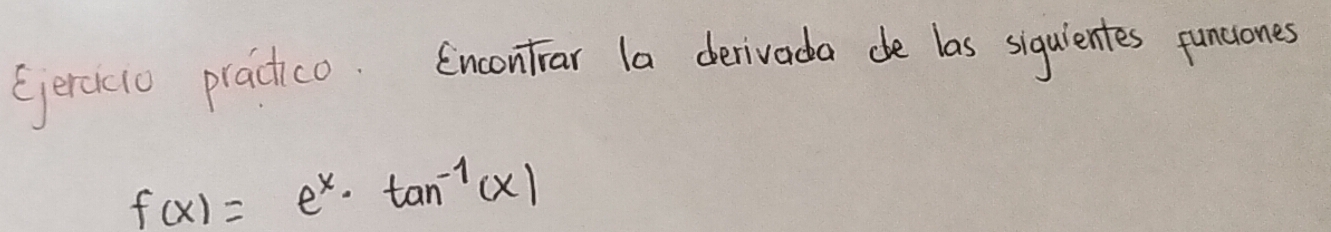 Ejercicio práctico. Encontrar la derivada de las siguientes funciones
f(x) = eˣ · tan⁻¹(x)